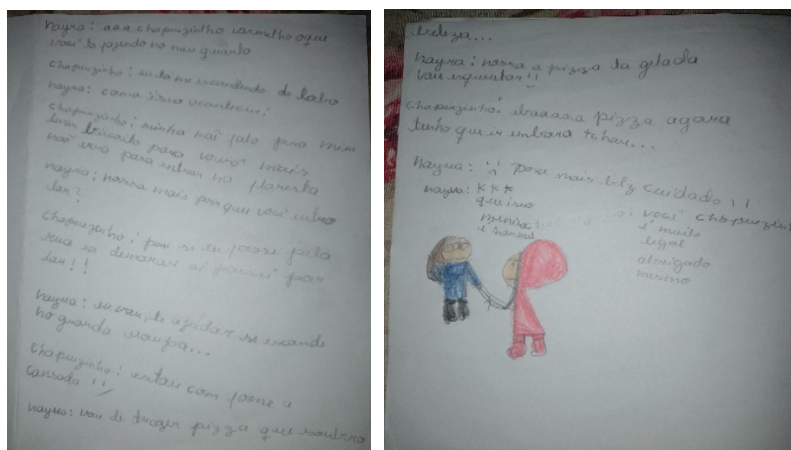 nayra: aaa chapeuzinho vermelho oque
você ta fazendo no meu quarto
chapeuzinho: eu to me escondendo do lobo
nayra: como isso aconteceu?
chapeuzinho: minha mãe falo para mim
levar biscoito para vovó mais
não era para entrar na floresta
nayra: nossa mais porque você entro
lar?
chapeuzinho: pois se eu fosse pela
rua ia demorar ai passei por
lar!!
nayra: eu vou te ajudar se esconde
no guarda roupa...
chapeuzinho: estou com fome e
cansada!!
nayra: vou de trazer pizza que sobro
beleza...
nayra: nossa a pizza ta gelada
vou esquentar!!
chapeuzinho: ebaaaaa pizza agora
tenho que ir embora tchau...
nayra: poxa mais blz cuidado!!
nayra: kkk
que isso
é normal
você chapeuzinho
é muito
legal
obrigado
mesmo